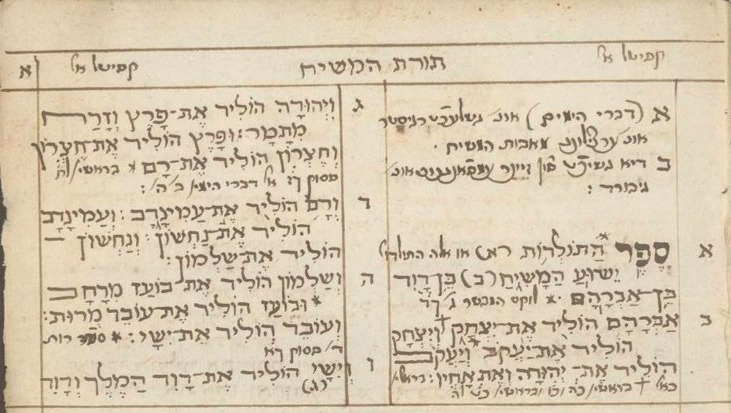 קפיטל א׳ תורת המשיח קפיטל א׳ א
א (דברי הימים) אונ גשלעכט רגיסטר
אונ ערצילונג מאבות המשיח.
ב דיא גשיכט פון זיינר אונ׳
גיבורד:
א ספר התולדות או אלה התולדות
ישוע המשיח בן דוד
בן אברהם
ב אברהם הוליד את יצחק ויצחק
הוליד את יעקב ויעקב
הוליד את יהודה ואת אחיו:
ג ויהודה הוליד את־פרץ וזרח
מתמר: ופרץ הוליד את חצרון
וחצרון הוליד את־רם
א׳ דברי הימים ב׳
ד ורם הוליד את־עמינדב: ועמינדב
הוליד את־נחשון: ונחשון
הוליד את־שלמון:
ה ושלמון הוליד את־בועז מרחב
ובועז הוליד את־עובד מרות:
ועובד הוליד את־ישי: ספר רות
ד׳ פסוק
ו וישי הוליד את־דוד המלך ודוד